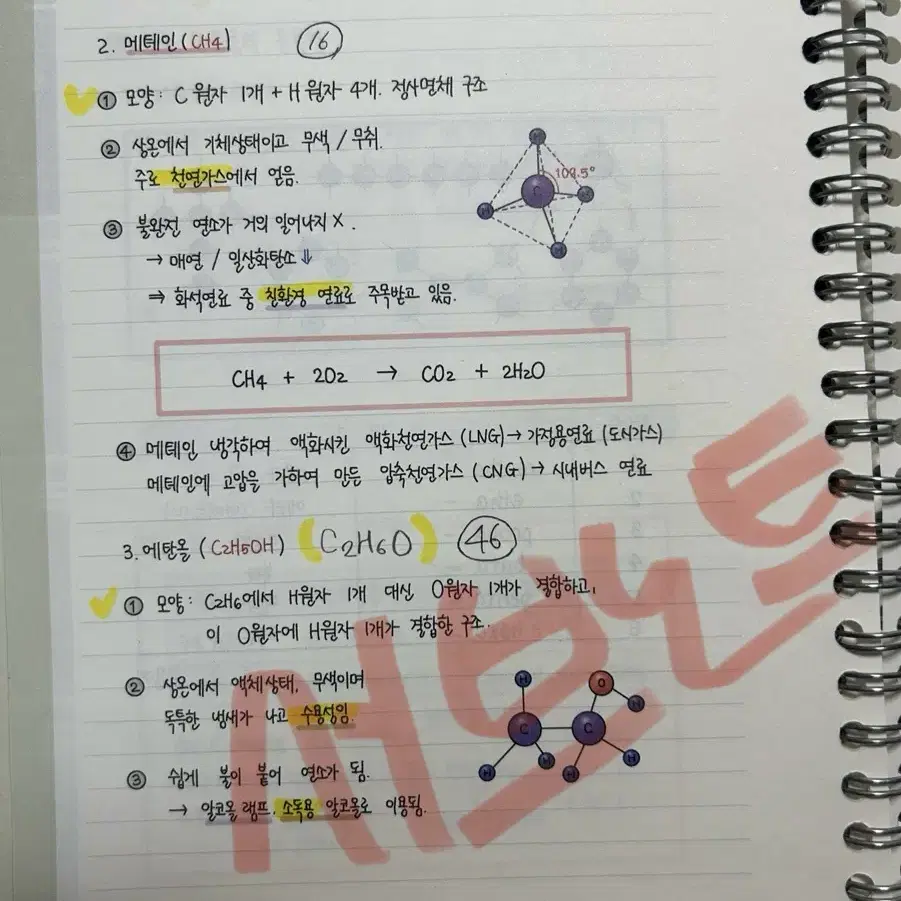 2. 메테인(CH4) 16
① 모양: C 원자 1개 + H 원자 4개. 정사면체 구조
② 상온에서 기체상태이고 무색 / 무취.
주로 천연가스에서 얻음.
C
H
H
H
H
109.5°
③ 불완전 연소가 거의 일어나지 X.
→ 매연 / 일산화탄소 ⇓
⇒ 화석연료 중 친환경 연료로 주목받고 있음.
CH4 + 2O2 → CO2 + 2H2O
④ 메테인 냉각하여 액화시킨 액화천연가스 (LNG) → 가정용연료 (도시가스)
메테인에 고압을 가하여 만든 압축천연가스 (CNG) → 시내버스 연료
3. 에탄올 (C2H5OH) (C2H6O) 46
① 모양: C2H6에서 H원자 1개 대신 O원자 1개가 결합하고,
이 O원자에 H원자 1개가 결합한 구조.
② 상온에서 액체상태, 무색이며
독특한 냄새가 나고 수용성임.
H
O
H
C
C
H
H
H
H
③ 쉽게 불이 붙어 연소가 됨.
→ 알코올 램프, 소독용 알코올로 이용됨.
서브노트